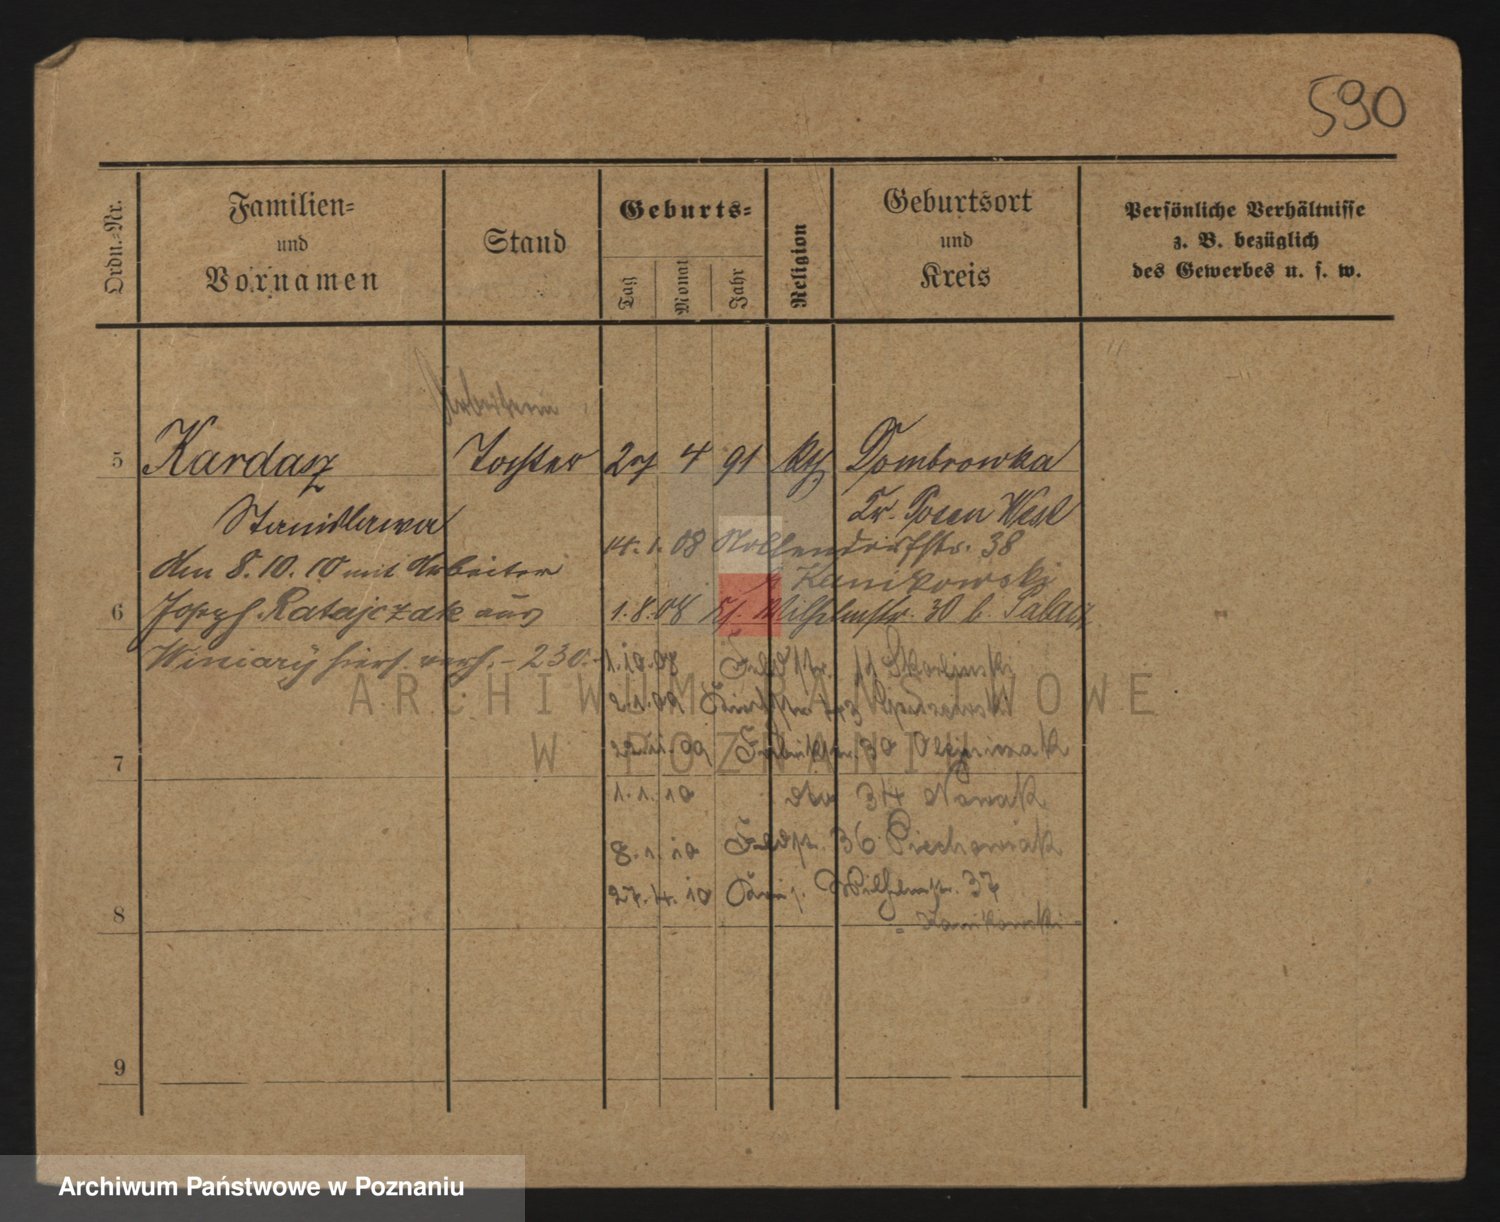 590
Ordn.-Nr.
Familien-
und
Vornamen
Stand
Geburts-
Tag
Monat
Jahr
Religion
Geburtsort
und
Kreis
Persönliche Verhältnisse
z. B. bezüglich
des Gewerbes u. s. w.
Arbeiterin
5 Kardasz Tochter 27 4 91 kth Dombrowka
Stanislawa Kr. Posen West
14.1.08 Nollendorfstr. 38
den 8.10.10 mit Arbeiter
b Kanikowski
6 Joseph Ratajczak aus 1.8.08 Wilhelmstr. 30 b.
Winiary hier verh. - 230.-
1.10.08 Feldstr. 11 Skorlinski
2.1.09
ARCHIWUM PAŃSTWOWE
W POZNANIU
7 09 30
1.1.10 34 Nowak
8.1.10 Feldstr. 36 Piechowiak
27.4.10 Wilhelmstr. 37
8 - Kanikowski -
9
Archiwum Państwowe w Poznaniu